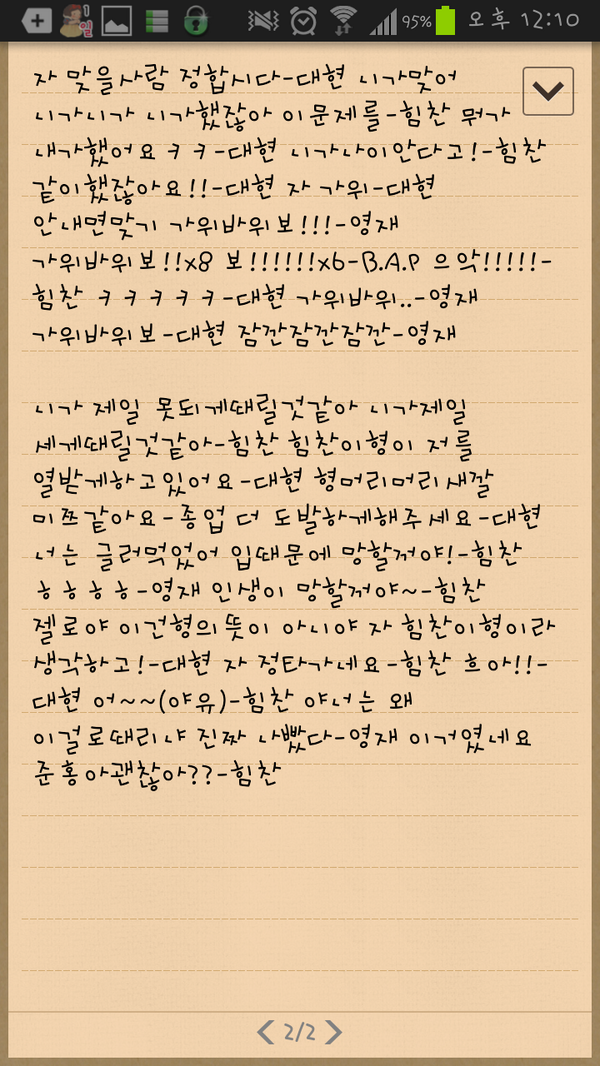 95% 오후 12:10
자 맞을사람 정합시다-대현 니가맞어
니가니가 니가했잖아 이 문제를-힘찬 뭐가
내가했어요ㅋㅋ-대현 니가나이안다고!-힘찬
같이했잖아요!!-대현 자 가위-대현
안내면맞기 가위바위보!!!-영재
가위바위보!!x8 보!!!!!!x6-B.A.P 으악!!!!!-
힘찬 ㅋㅋㅋㅋㅋ-대현 가위바위..-영재
가위바위보-대현 잠깐잠깐잠깐-영재
니가 제일 못되게때릴것같아 니가제일
세게때릴것같아-힘찬 힘찬이형이 저를
열받게하고있어요-대현 형머리머리새깔
미쯔같아요-종업 더 도발하게해주세요-대현
너는 글러먹었어 입때문에 망할꺼야!-힘찬
ㅎㅎㅎㅎ-영재 인생이 망할꺼야~-힘찬
젤로야 이건형의뜻이 아니야 자 힘찬이형이라
생각하고!-대현 자 정타가네요-힘찬 흐아!!-
대현 어~~(야유)-힘찬 야너는 왜
이걸로때리냐 진짜 나빴다-영재 이거였네요
준홍아괜찮아??-힘찬
2/2